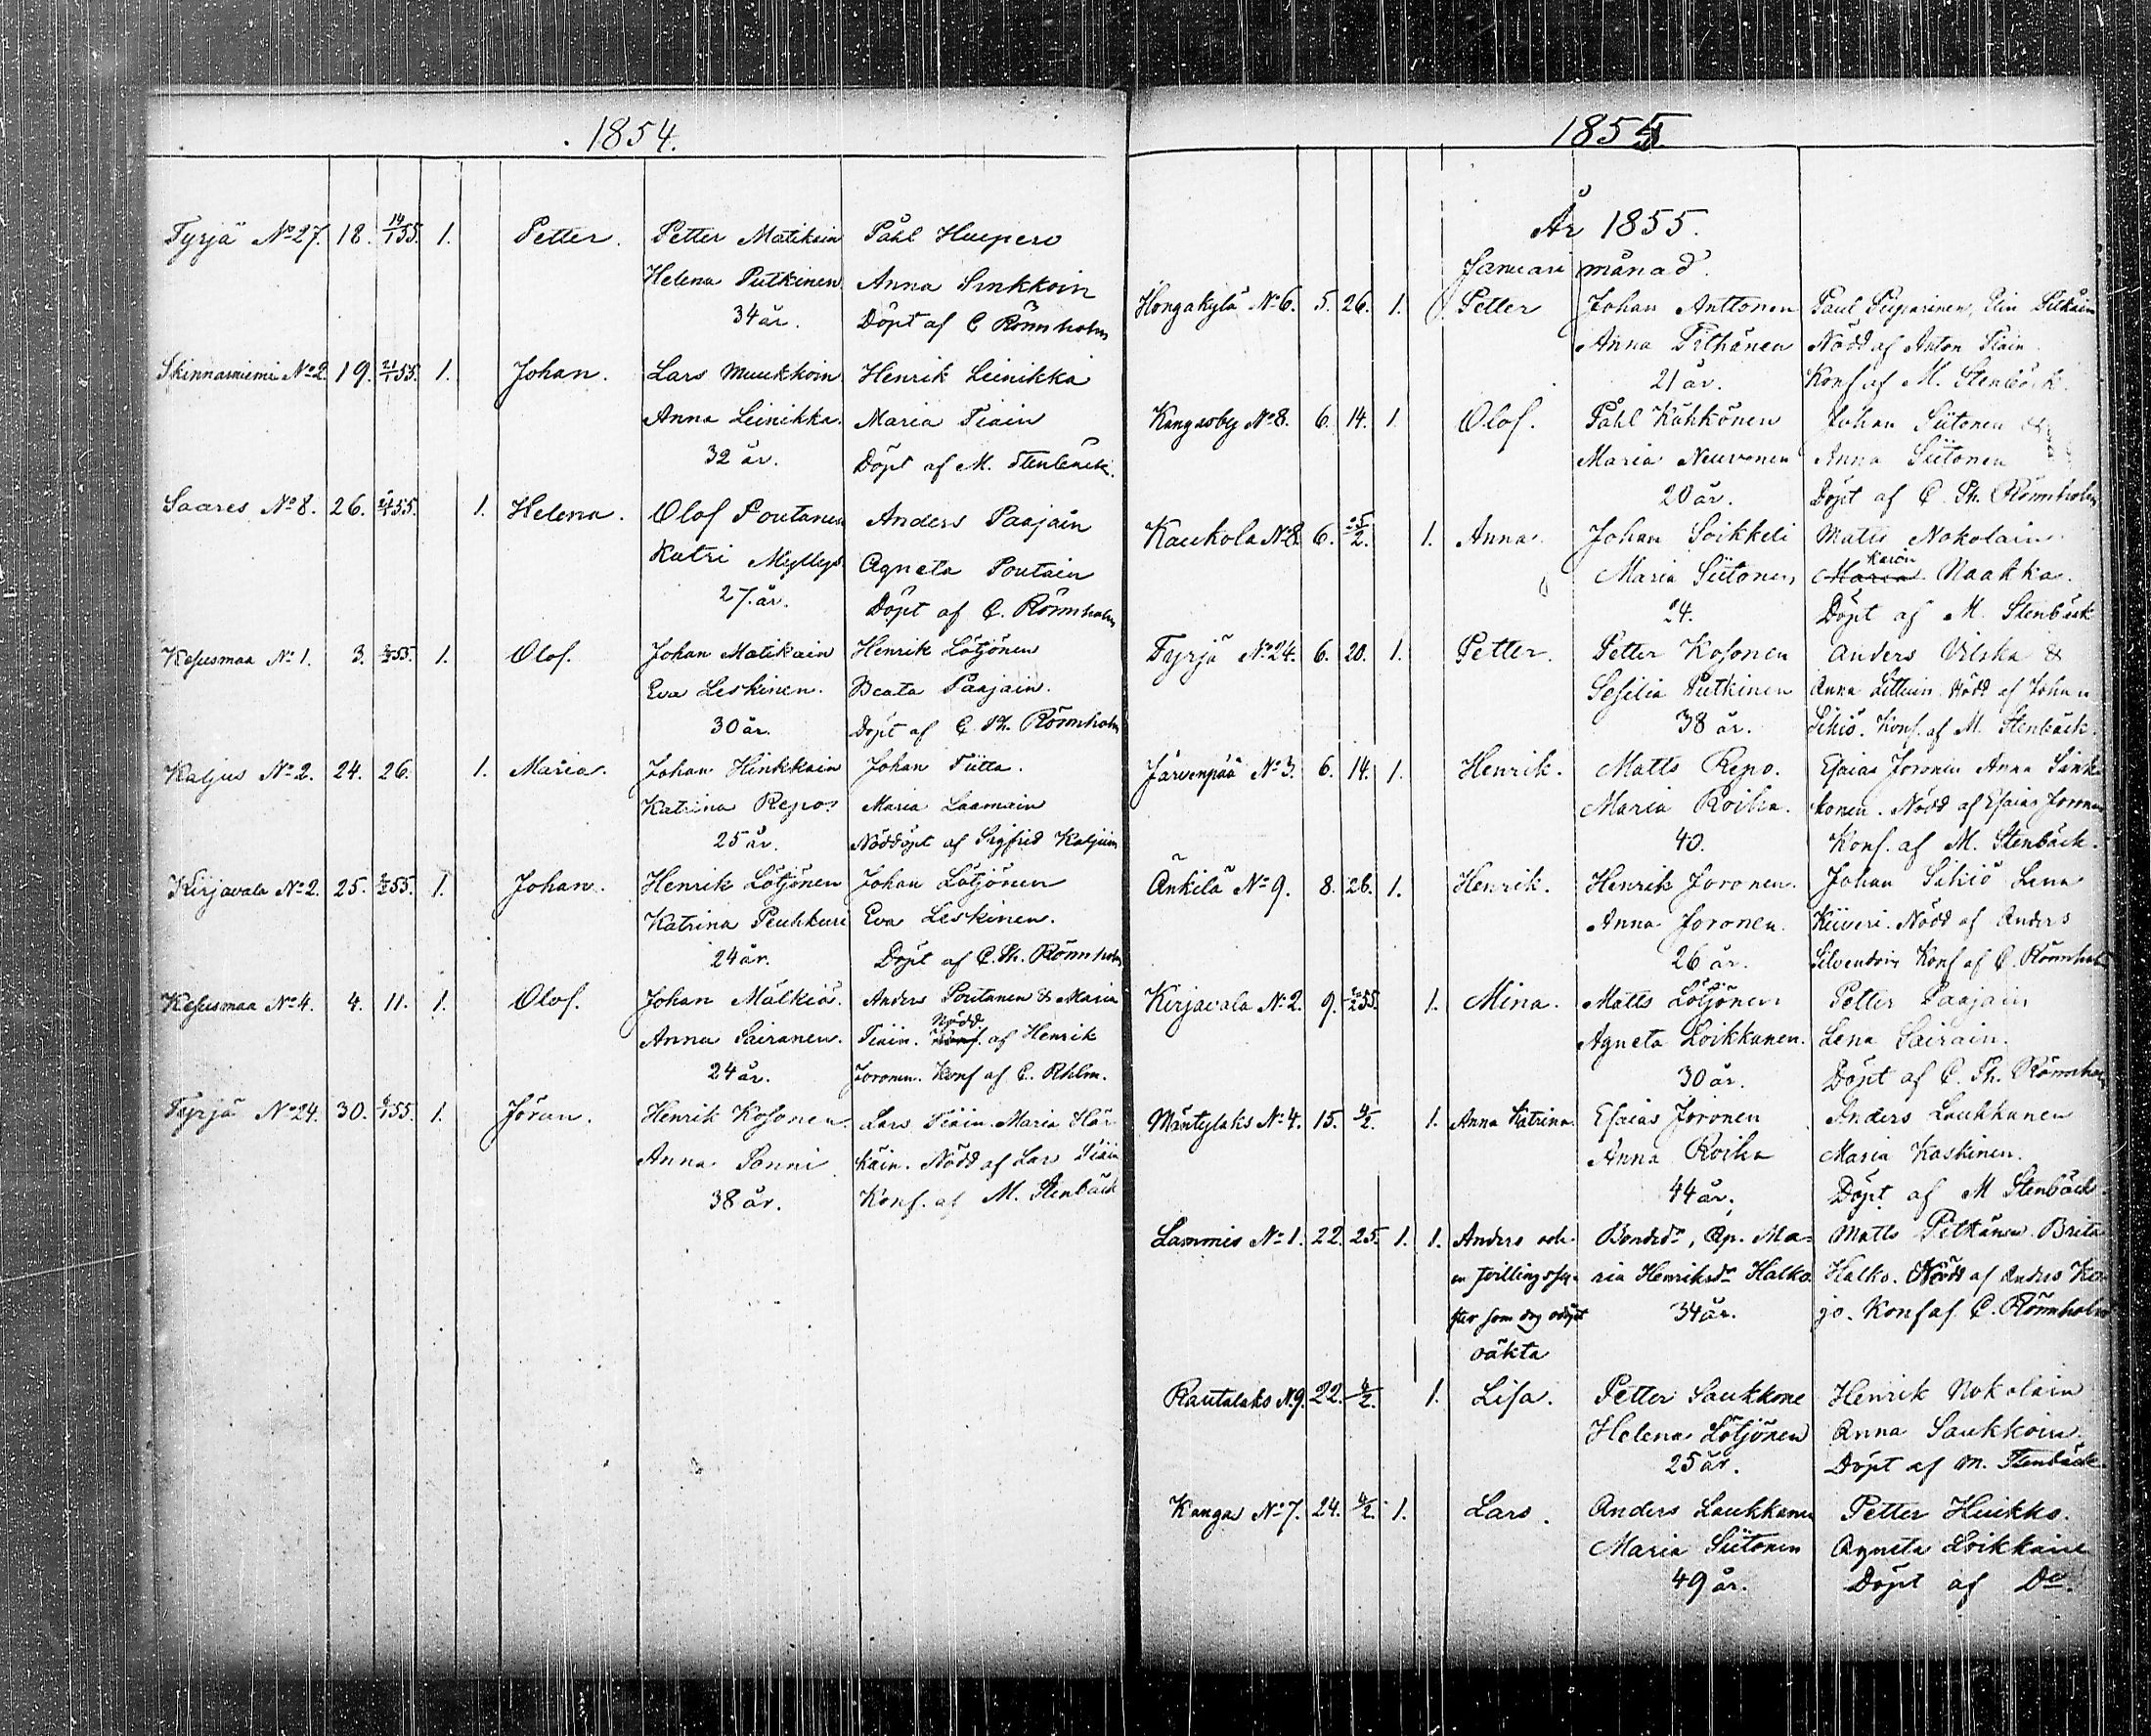 1854.
Tyrjä No 27. 18. 14/1 55. 1. Petter. Petter Matikain Påhl Huupero
Helena Putkinen Anna Sinkkoin
34 år. Döpt af C Rönnholm
Skinnarniemi No 2. 19. 21/1 55. 1. Johan. Lars Muukkoin Henrik Leinikka
Anna Leinikka. Maria Tiain
32 år. Döpt af M. Stenbäck.
Saares No 8. 26. 55. 1. Helena. Olof Poutanen Anders Paajain
Katri Myllys Agneta Poutain
27. år. Döpt af C. Rönnholm
Kesusmaa No 1. 3. 55. 1. Olof. Johan Matikain Henrik Lötjönen
Eva Leskinen. Beata Paajain.
30 år. Döpt af C. Th. Rönnholm
Kaljus No 2. 24. 26. 1. Maria. Johan Hinkkain Johan Tiitta.
Katrina Repo. Maria Laamain
25 år. Nöddöpt af Sigfrid Kaljuin
Kirjavala No 2. 25. 55. 1. Johan. Henrik Lötjönen Johan Lötjönen
Katrina Peuhkuri Eva Leskinen.
24 år. Döpt af C. Th. Rönnholm
Kesusmaa No 4. 4. 11. 1. Olof. Johan Mälkiä. Anders Poutanen & Maria
Anna Sairanen. Tiain. Nödd af Henrik
24 år. Joronen. Konf af C. Rhlm.
Tyrjä No 24. 30. 55. 1. Jöran. Henrik Kosonen Lars Tiain Maria Här
Anna Ponni käin. Nödd af Lars Tiain
38 år. Konf. af M. Stenbäck
1855
År 1855.
Januari månad.
Hongakylä No 6. 5. 26. 1. Petter Johan Anttonen Paul
Anna Pithänen Nödd af Anton Tiain
21 år. Konf af M. Stenbäck.
Kangasby No 8. 6. 14. 1. Olof. Påhl Kuhkonen Johan Siitonen &
Maria Neuvonen Anna Siitonen
20 år. Döpt af C. Th. Rönnholm
Kaukola No 8. 6. 25/2. 1. Anna. Johan Soikkeli Matts Nokolain
Maria Siitonen Karin Naakka.
24. Döpt af M. Stenbäck
Tyrjä No 24. 6. 20. 1. Petter. Petter Kosonen Anders Vilska &
Sesilia Putkinen Anna Nödd af Johan
38 år. Sihiö. Konf. af M. Stenbäck.
Järvenpää No 3. 6. 14. 1. Henrik. Matts Repo. Esaias Joronen Anna Sink
Maria Roiha. konen. Nödd af Esaias Joronen
40. Konf. af M. Stenbäck.
Änkilä No 9. 8. 26. 1. Henrik. Henrik Joronen. Johan Sihiö Lena
Anna Joronen. Kiiveri. Nödd af Anders
26 år. Konf af C. Rönnholm
Kirjavala No 2. 9. 55. 1. Mina. Matts Lötjönen Petter Paajain
Agneta Loikkanen. Lena Sairain.
30 år. Döpt af C. Th. Rönnholm
Mäntylaks No 4. 15. 4/2. 1. Anna Katrina. Esaias Joronen Anders Laukkanen
Anna Roiha Maria Koskinen.
44 år. Döpt af M Stenbäck.
Lammis No 1. 22. 25. 1. 1. Anders och Bonded:r, Qp. Ma= Matts Pitkänen Brita
en tvillingssy= ria Henriksdr Halko. Halko. Nödd af Anders Ko
ster som dog odöpt 34 år. jo. Konf af C. Rönnholm
oäkta
Rautalaks N. 9. 22. 4/2. 1. Lisa. Petter Saukkone Henrik Nokolain
Helena Lötjönen Anna Saukkoin.
25 år. Döpt af M. Stenbäck
Kangas No 7. 24. 4/2. 1. Lars. Anders Laukkanen Petter Huikko.
Maria Siitonen Agneta Loikkain
49 år. Döpt af Do.